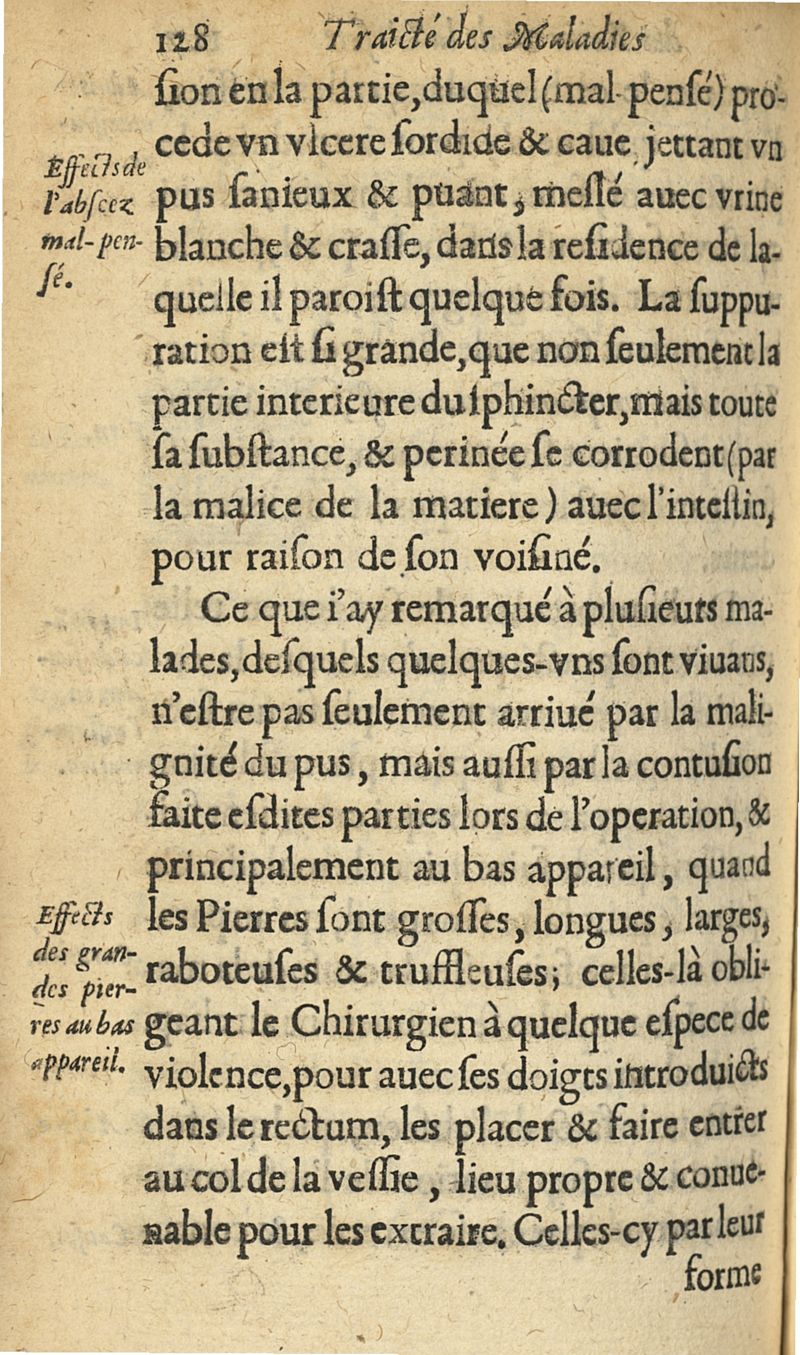 128 Traicté des Maladies
sion en la partie, duquel (mal pensé) pro-
cede vn vlcere sordide & caue, jettant vn
Effects de
l'abscez
mal-pen-
sé.
pus sanieux & puant, meslé auec vrine
blanche & crasse, dans la residence de la-
quelle il paroist quelque fois. La suppu-
ration est si grande, que non seulement la
partie interieure du sphincter, mais toute
sa substance, & perinée se corrodent (par
la malice de la matiere) auec l'intestin,
pour raison de son voisiné.
Ce que i'ay remarqué à plusieurs ma-
lades, desquels quelques-vns sont viuans,
n'estre pas seulement arriué par la mali-
gnité du pus, mais aussi par la contusion
faite esdites parties lors de l'operation, &
principalement au bas appareil, quand
les Pierres sont grosses, longues, larges,
Effects
des gran-
des pier-
res au bas
appareil.
raboteuses & truffleuses; celles-là obli-
geant le Chirurgien à quelque espece de
violence, pour auec ses doigts introduicts
dans le rectum, les placer & faire entrer
au col de la vessie, lieu propre & conue-
nable pour les extraire. Celles-cy par leur
forme